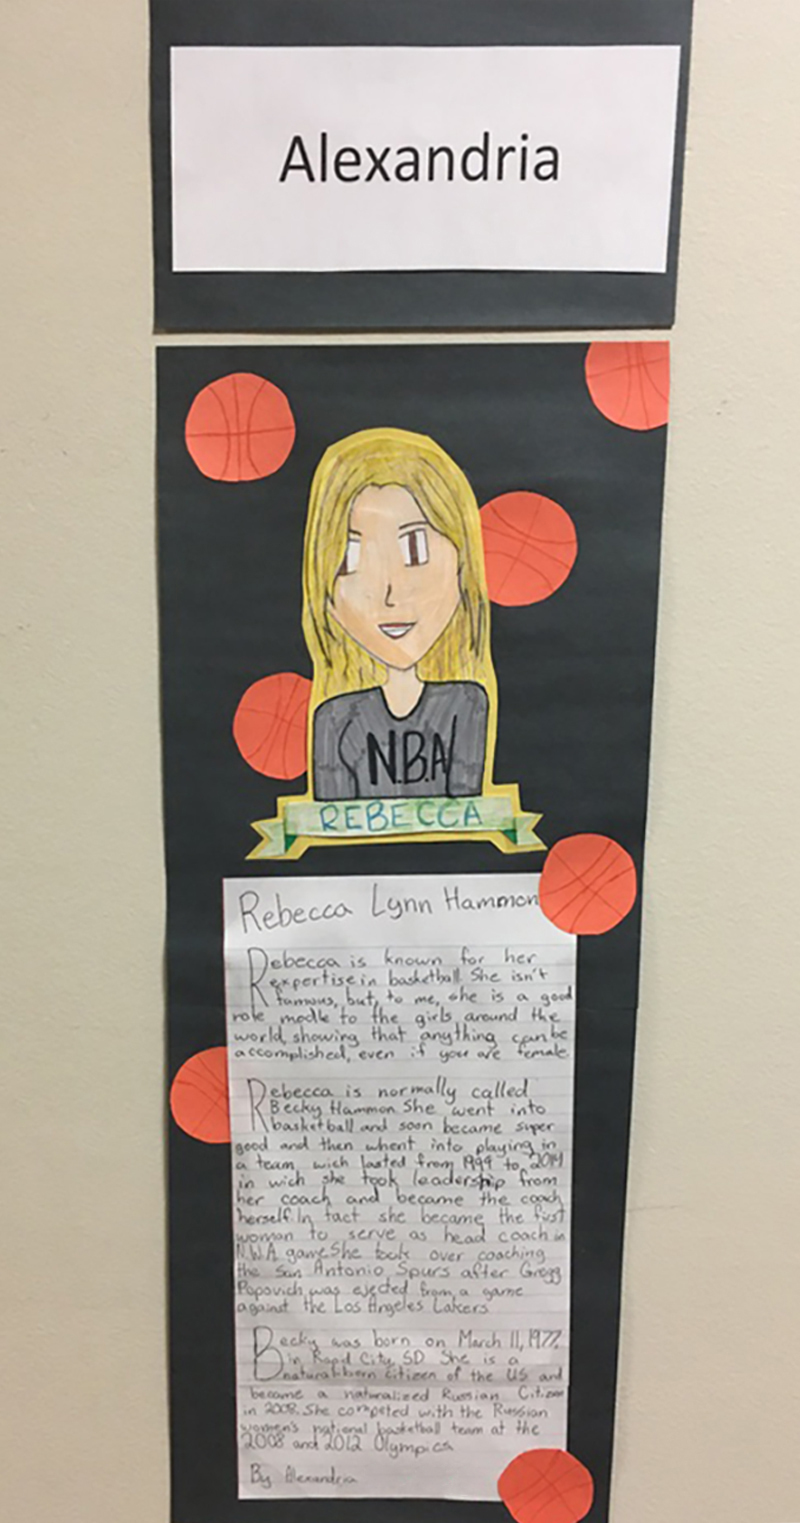 Alexandria
N.B.A
REBECCA
Rebecca Lynn Hammon
Rebecca is known for her
expertise in basketball. She isn't
famous, but, to me, she is a good
role modle to the girls around the
world, showing that anything can be
accomplished, even if you are female.
Rebecca is normally called
Becky Hammon. She went into
basketball and soon became super
good and then whent into playing in
a team, wich lasted from 1999 to 2014
in wich she took leadership from
her coach and became the coach
herself. In fact she became the first
woman to serve as head coach in
N.W.A game. She took over coaching
the San Antonio Spurs after Gregg
Popovich was ejected from a game
against the Los Angeles Lakers
Becky was born on March 11, 1977,
in Rapid City, SD She is a
natural-born citizen of the US and
became a naturalized Russian Citizen
in 2008. She competed with the Russian
women's national basketball team at the
2008 and 2012 Olympics
By Alexandria